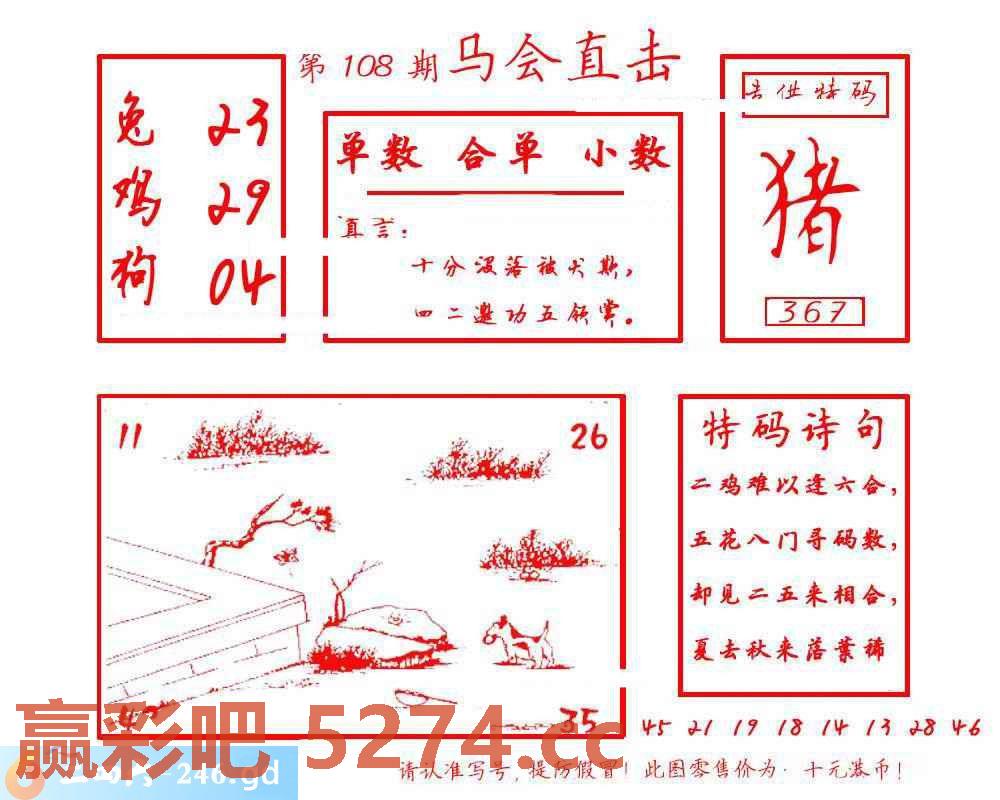 第 108 期 马会直击
兔 23
鸡 29
狗 04
单数 合单 小数
真言:
十分没落被犬欺,
四二邀功五领赏。
特码
猪
367
11
26
35
特码诗句
二鸡难以逢六合,
五花八门寻码数,
却见二五来相合,
夏去秋来落葉稀
45 21 19 18 14 13 28 46
赢彩吧 5274.cc
-246.gd
请认准写号,提防假冒!此图零售价为:十元港币!